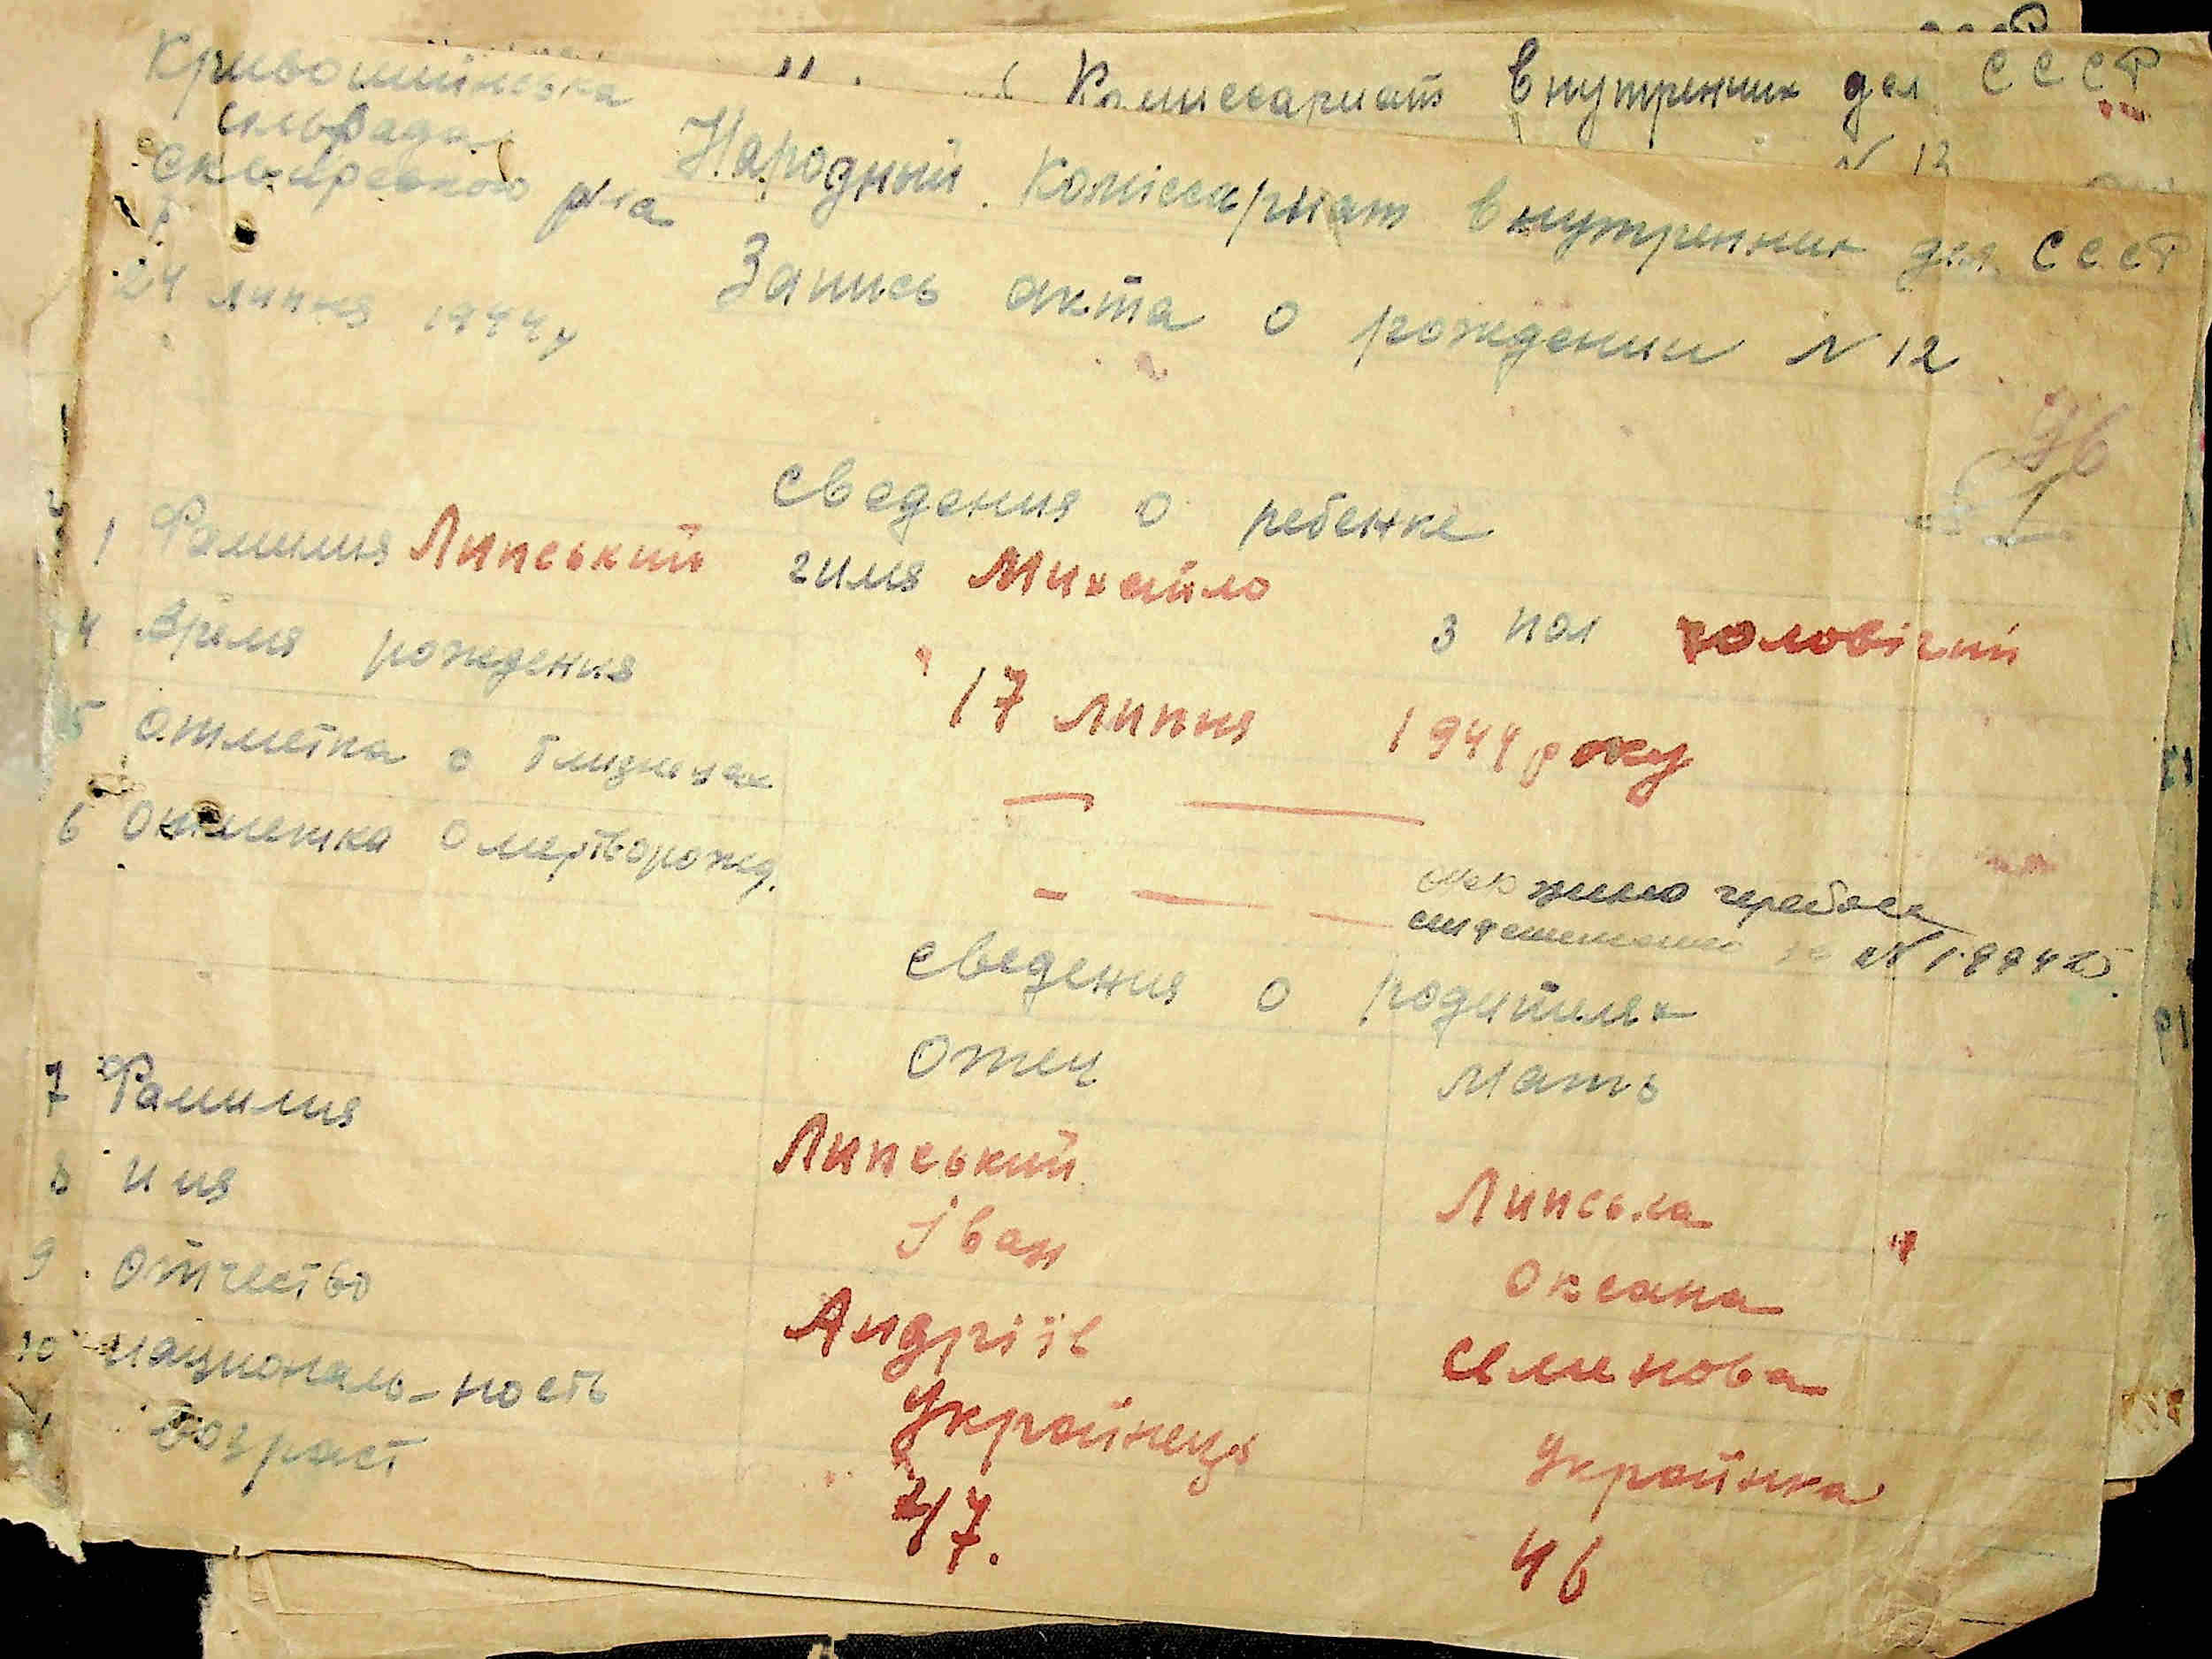 Комиссариат внутренних дел СССР
N 13
Кривошиїнська
сільрада
Сквирського р-на
24 липня 1944 р
Народный Комиссариат внутренних дел СССР
Запись акта о рождении N 12
96
Сведения о ребенке
1 Фамилия Липський 2 имя Михайло 3 пол чоловічий
4 Время рождения 17 липня 1944 року
5 Отметка о близнецах — —
6 Отметка о мертворожд. — — —
N 199425
Сведения о родителях
Отец Мать
7 Фамилия Липський Липська
8 Имя Іван Оксана
9 Отчество Андріїв Семенова
10 Националь-ность Українець Українка
Возраст 47. 46